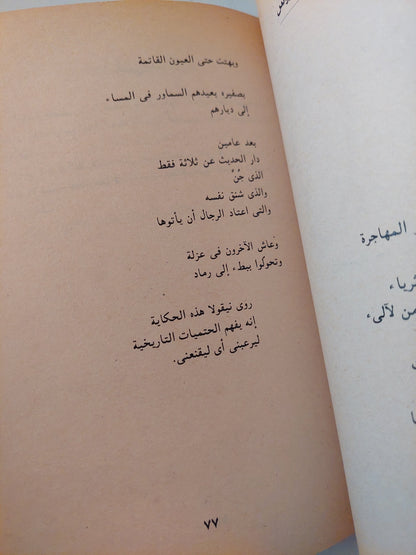 وبهتت حتى العيون القاتمة
بصفيره يعيدهم السماور فى المساء
إلى ديارهم
بعد عامين
دار الحديث عن ثلاثة فقط
الذى جُنَّ
والذى شنق نفسه
والتى اعتاد الرجال أن يأتوها
وعاش الآخرون فى عزلة
وتحولوا ببطء إلى رماد
روى نيقولا هذه الحكاية
إنه يفهم الحتميات التاريخية
ليرعبنى أى ليقنعنى.
٧٧
المهاجرة
ثرياء
من لآلىء